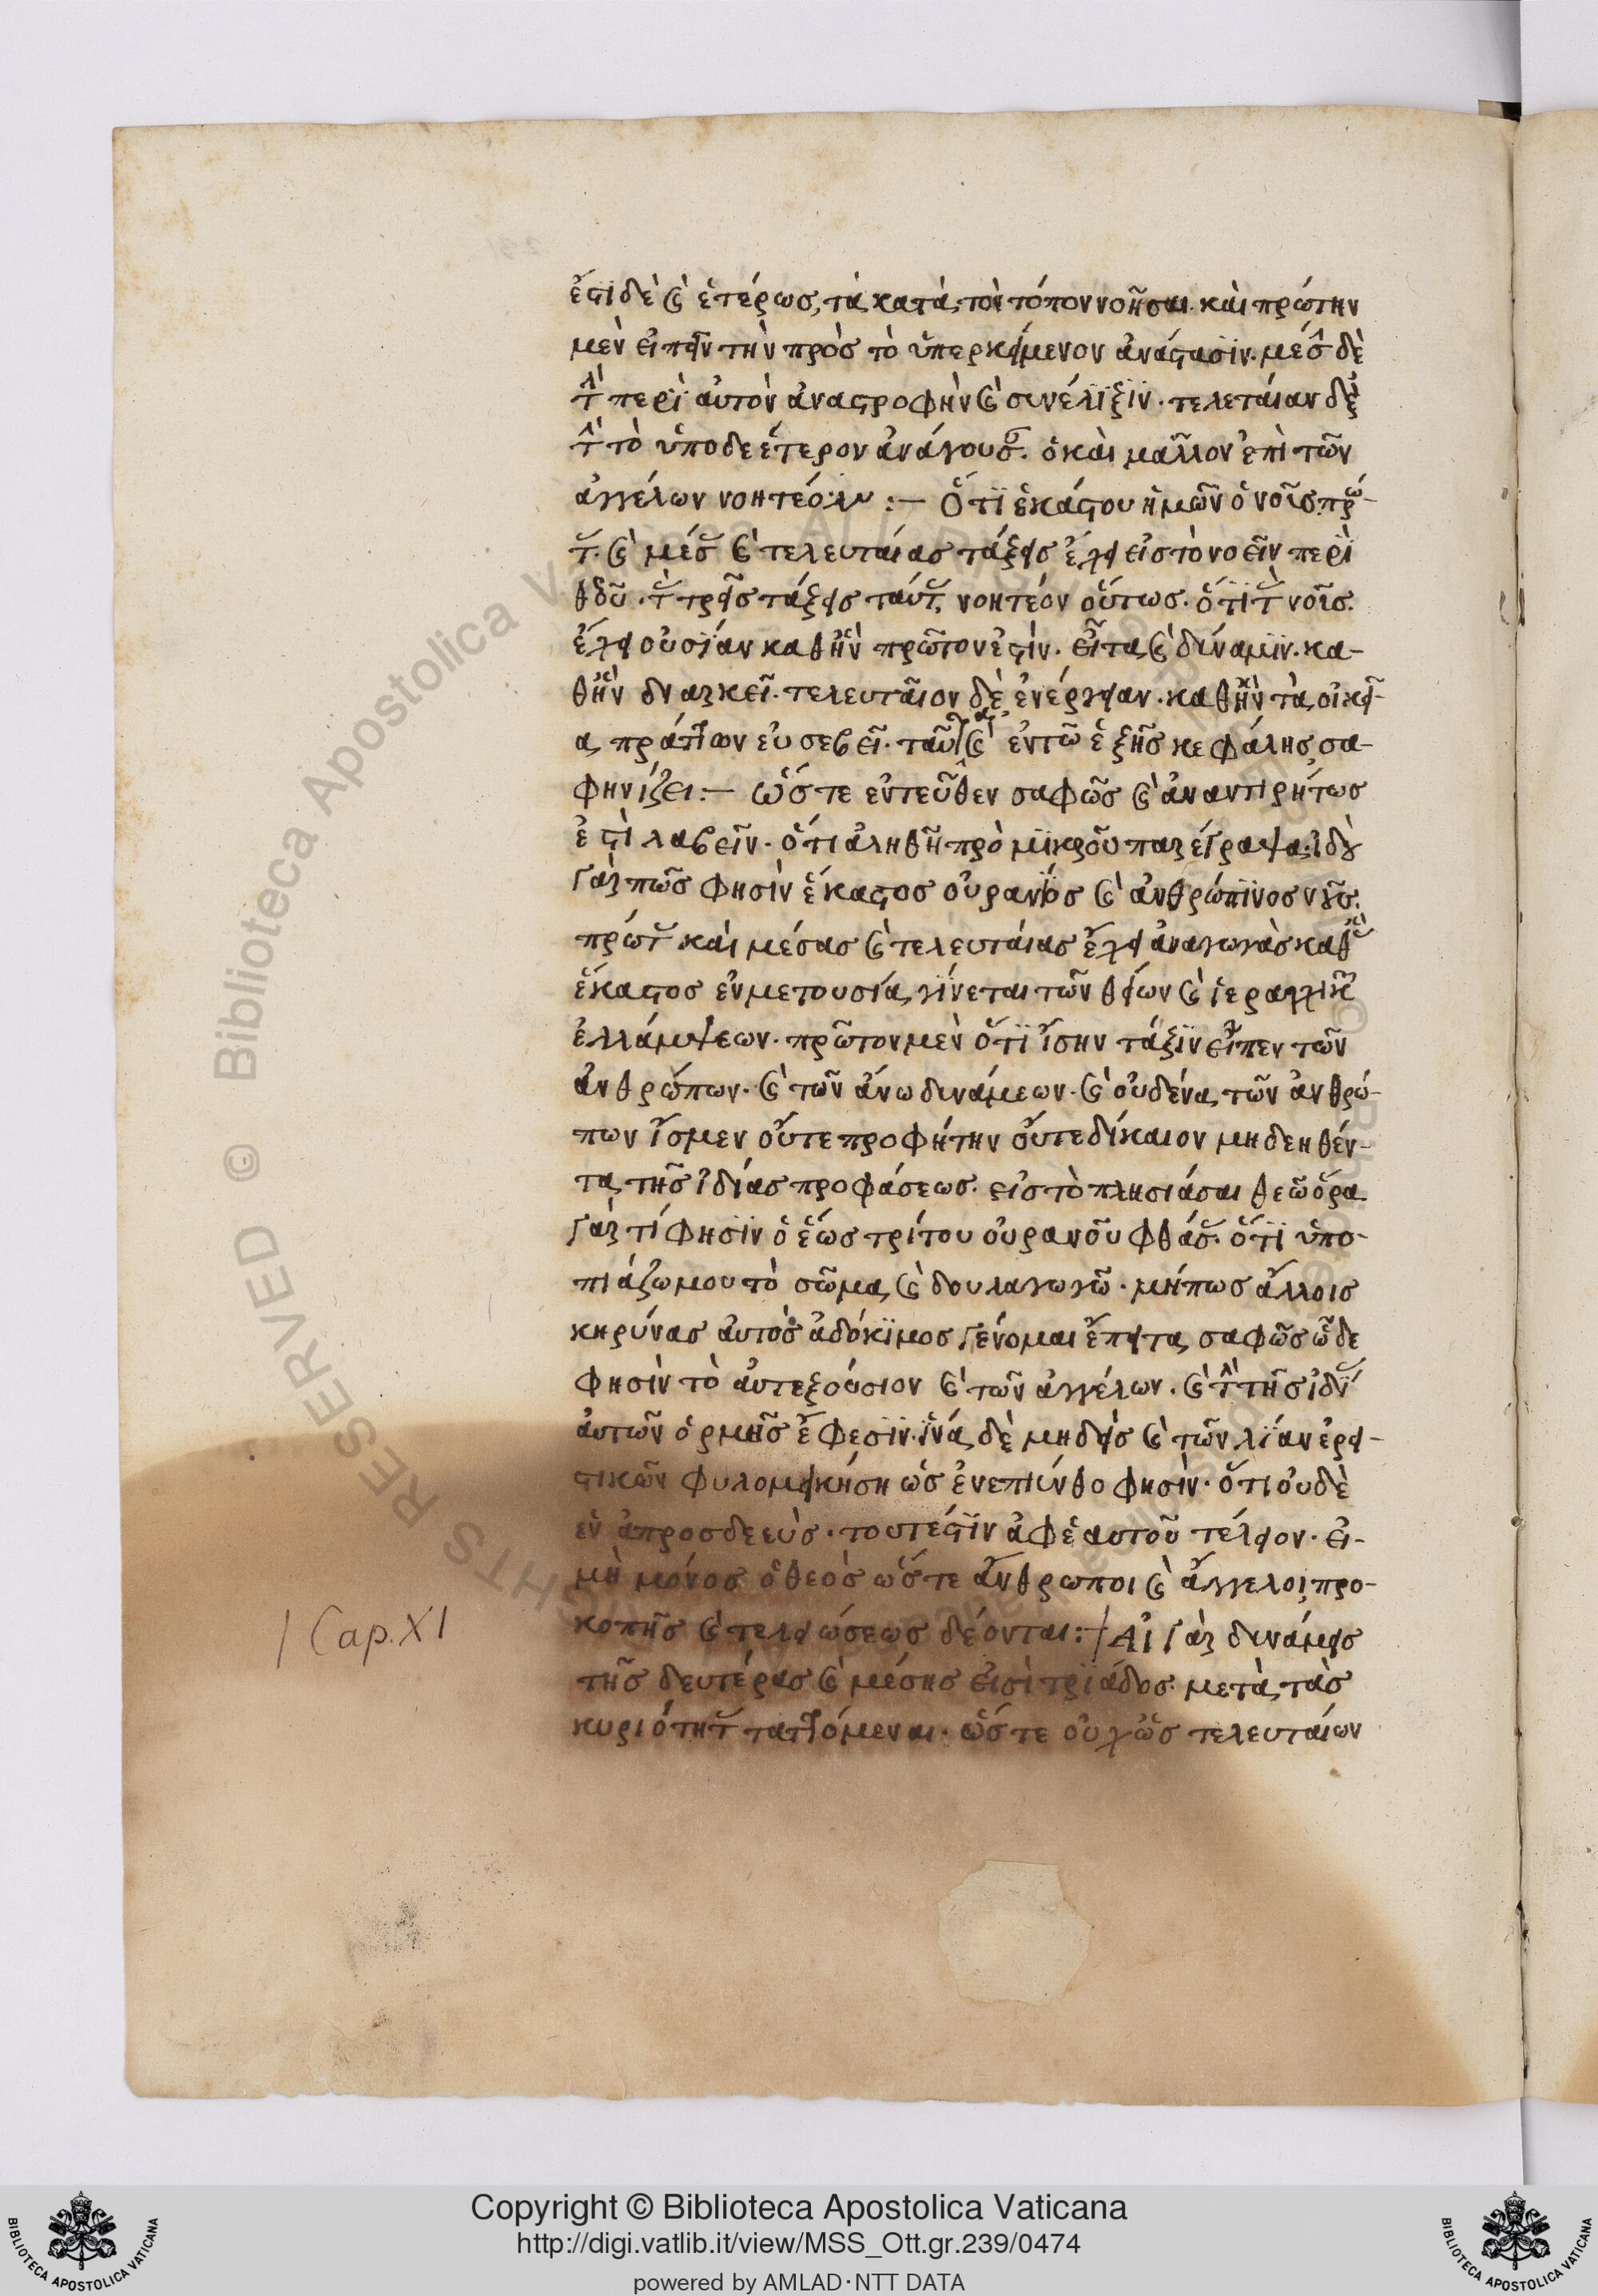 ἔστι δὲ καὶ ἑτέρως, τὰ κατὰ τὸν τόπον νοῆσαι. καὶ πρώτην
μὲν εἰπεῖν τὴν πρὸς τὸ ὑπερκείμενον ἀνάτασϊν. μέσ δὲ
τὴν περϊ αὐτὸν ἀναστροφὴν καὶ συνέλϊξϊν. τελεταίαν δὲ
τὴν τὸ ὑποδεέστερον ἀνάγουσ. ὁ καὶ μᾶλλον ἐπὶ τῶν
ἀγγέλων νοητέον :— Ὅτϊ ἑκάστου ἡμῶν ὁ νοῦς πρώ-
τ. καὶ μέσ καὶ τελευταίας τάξεις ἔχει εἰς τὸ νοεῖν περὶ
θεοῦ. τὰς τρεῖς τάξεις ταύτ, νοητέον οὕτως. ὅτϊ τ νοῦς.
ἔχει οὐσϊαν καθ ἣν πρῶτον ἐστίν. εἶτα καὶ δύναμϊν. κα-
θ ἣν διαρκεῖ. τελευταῖον δὲ ἐνέργειαν. καθ ἣν τὰ οἰκεῖ-
α πράττων εὐσεβεῖ. ταῦτα καὶ ἐν τῶ ἑξῆς κεφάλης σα-
φηνίζει :— ὥστε ἐντεῦθεν σαφῶς καὶ ἀναντιρήτως
ἐστὶ λαβεῖν. ὅτι ἀληθῆ πρὸ μϊκροῦ παρέγραψα. ἰδοὺ
γὰρ πῶς φησὶν ἕκαστος οὐράνιος καὶ ἀνθρώπϊνος νοῦς.
πρώτ καὶ μέσας καὶ τελευταίας ἔχει ἀναγωγὰς καθ ἃς
ἕκαστος ἐν μετουσία γίνεται τῶν θείων καὶ ἱεραρχικ
ἐλλάμψεων. πρῶτον μὲν ὅτϊ ἴσην τάξϊν εἶπεν τῶν
ἀνθρώπων. καὶ τῶν ἄνω δυνάμεων. καὶ οὐδένα τῶν ἀνθρώ-
πων ἴσμεν οὔτε προφήτην οὔτε δίκαιον μὴ δεηθέν-
τα τῆς ἰδίας προφάσεως. εἰς τὸ πλησιάσαι θεῶ ὅρα
γὰρ τί φησϊν ὁ ἕως τρίτου οὐρανοῦ φθάσ. ὅτϊ ὑπο-
πιάζω μου τὸ σῶμα καὶ δουλαγωγῶ. μήπως ἄλλοις
κηρύνας αὐτὸς ἀδόκϊμος γένομαι ἔπειτα σαφῶς ὧδε
φησὶν τὸ αὐτεξούσιον καὶ τῶν ἀγγέλων. καὶ τὴν τῆς ἰδϊ
αὐτῶν ὁρμῆς ἔφεσϊν. ἵνα δὲ μηδεὶς καὶ τῶν λϊαν ἐρι-
στικῶν φυλομεικήση ὡς ἐνεπιύνθο φησὶν. ὅτι οὐδὲ
ἐν ἀπροσδεεὺς. τουτέστϊν ἀφ ἑαυτοῦ τέλειον. εἰ-
μὴ μόνος ὁ θεὸς ὥστε ἄνθρωποι καὶ ἄγγελοι, προ-
κοπῆς καὶ τελειώσεως δέονται :/ Αἱ γὰρ δυνάμεις
τῆς δευτέρας καὶ μέσης εἰσὶ τρϊάδος μετὰ τὰς
κυριότητ ταττόμεναι. ὥστε οὐχ ὡς τελευταίων
/ Cap. XI
Copyright © Biblioteca Apostolica Vaticana
http://digi.vatlib.it/view/MSS_Ott.gr.239/0474
powered by AMLAD·NTT DATA
BIBLIOTECA APOSTOLICA VATICANA
BIBLIOTECA APOSTOLICA VATICANA